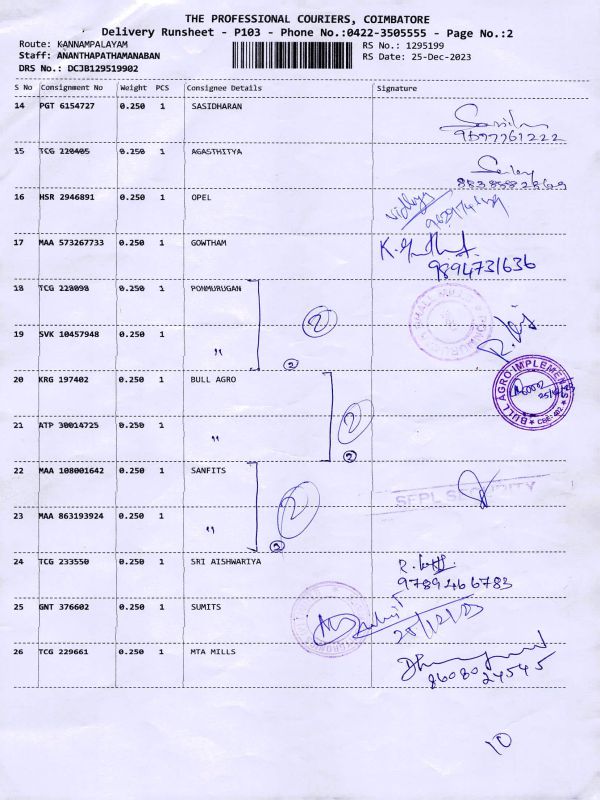 THE PROFESSIONAL COURIERS, COIMBATORE
Delivery Runsheet - P103 - Phone No.:0422-3505555 - Page No.:2
Route: KANNAMPALAYAM RS No.: 1295199
Staff: ANANTHAPATHAMANABAN RS Date: 25-Dec-2023
DRS No.: DCJB129519902
S No Consignment No Weight PCS Consignee Details Signature
14 PGT 6154727 0.250 1 SASIDHARAN
15 TCG 220405 0.250 1 AGASTHITYA
16 HSR 2946891 0.250 1 OPEL
Vidhya
17 MAA 573267733 0.250 1 GOWTHAM
9894731636
18 TCG 228098 0.250 1 PONMURUGAN
2
19 SVK 10457948 0.250 1 "
2
20 KRG 197402 0.250 1 BULL AGRO
BULL AGRO IMPLEMENTS
CBE-402
21 ATP 30014725 0.250 1 "
2
2
22 MAA 108001642 0.250 1 SANFITS
SFPL SECURITY
2
23 MAA 863193924 0.250 1 "
2
24 TCG 233550 0.250 1 SRI AISHWARIYA
9789466783
25 GNT 376602 0.250 1 SUMITS
25/12/23
26 TCG 229661 0.250 1 MTA MILLS
8608024545
10